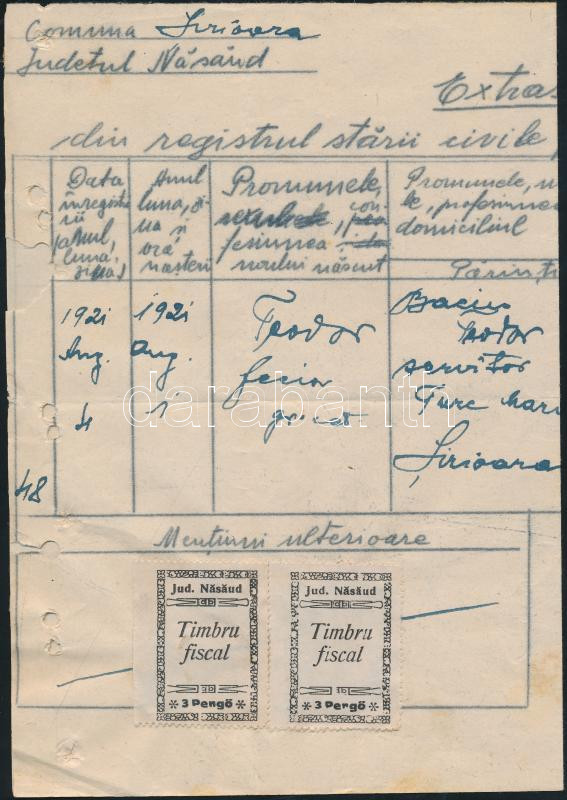 Comuna Șirioara
Județul Năsăud
Extras
din registrul stării civile,
Data
înregistr
ării
(anul,
luna,
ziua)
Anul
luna, zi-
ua și
ora
nașterii
Pronumele,
sexul, con-
fesiunea
noului născut
Pronumele, nu
le, profesiunea
domiciliul
Părinți
1921
Aug.
4
1921
Aug.
1
Teodor
fecior
gr. cat.
Baciu
Teodor
servitor
Turc Mari
Șirioara
48
Mențiuni ulterioare
Jud. Năsăud
Timbru
fiscal
3 Pengő
Jud. Năsăud
Timbru
fiscal
3 Pengő
darabanth